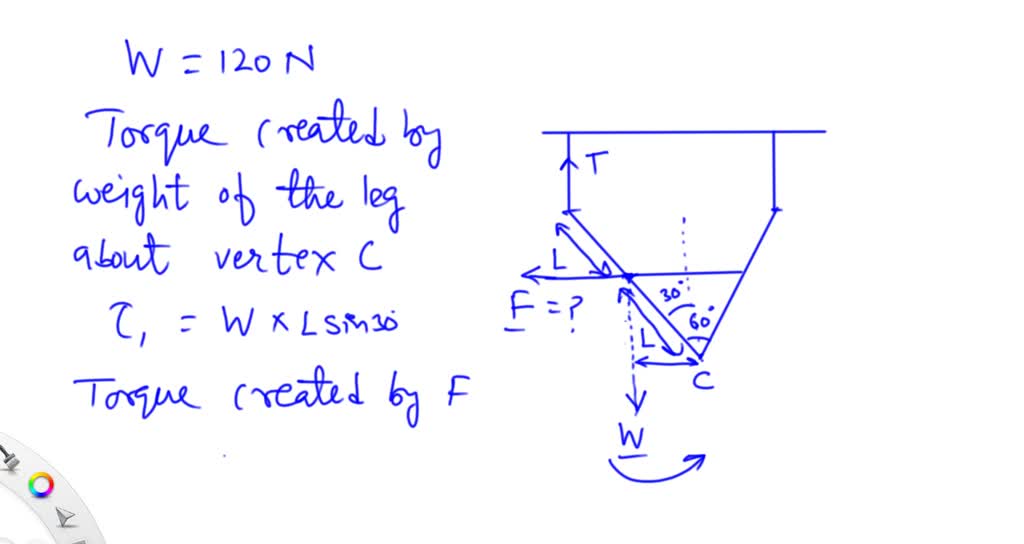 W = 120 N
Torque created by
weight of the leg
about vertex C
τ₁ = W × L sin30°
Torque created by F
T
L
F = ?
30°
60°
L
C
W